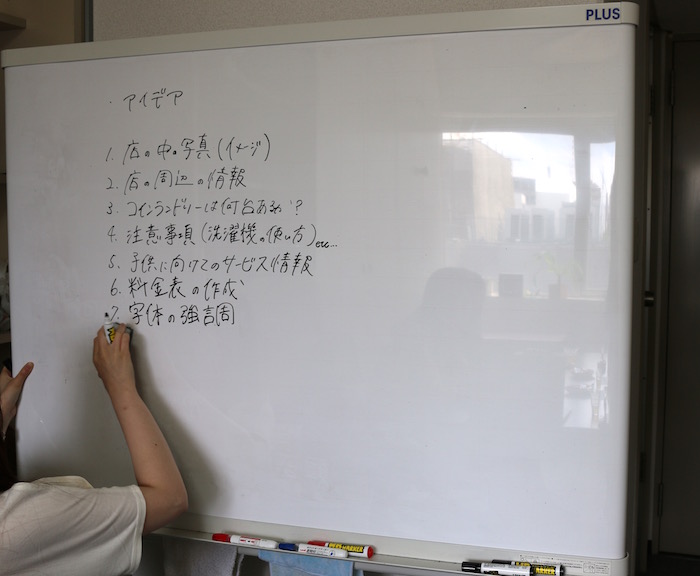 PLUS
・アイデア
1. 店の中の写真(イメージ)
2. 店の周辺の情報
3. コインランドリーは何台あるか?
4. 注意事項(洗濯機の使い方)etc...
5. 子供に向けてのサービス情報
6. 料金表の作成
7. 字体の強調